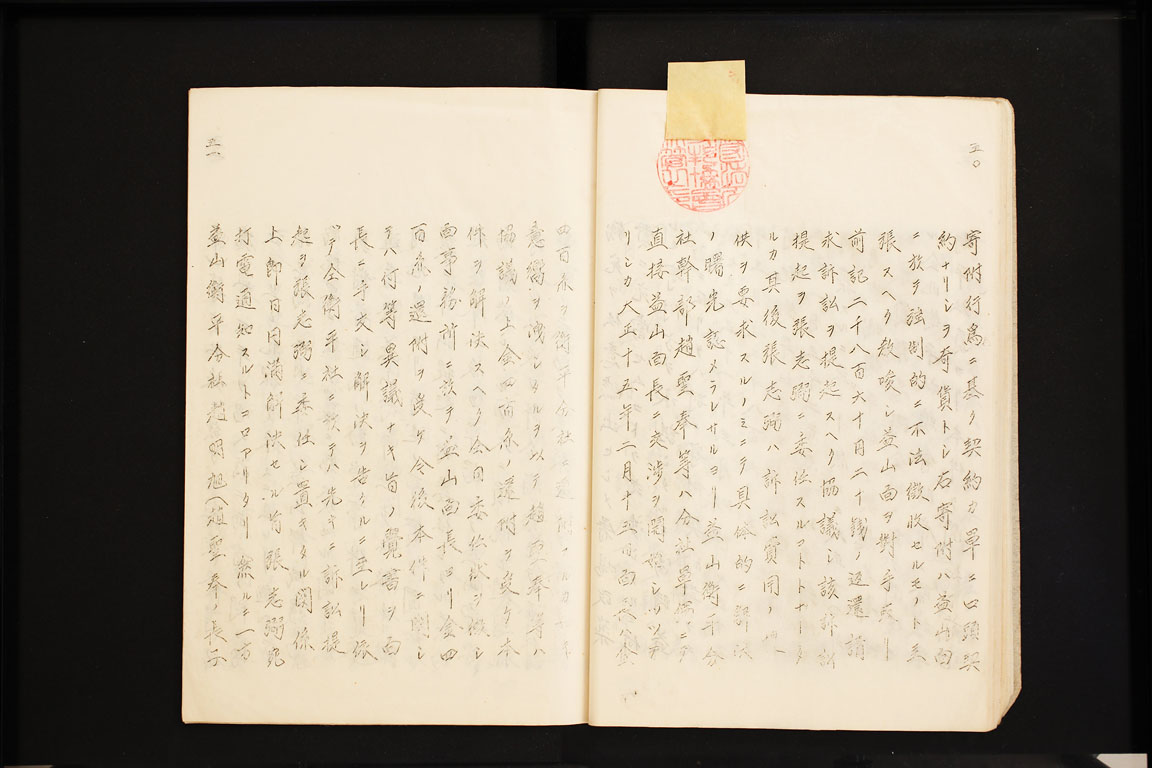 五〇
寄附行為ニ基ク契約カ単ニ口頭契
約ナリシヲ奇貨トシ右寄附ハ益山面
ニ於テ強制的ニ不法徴収セルモノト主
張スヘク教唆シ益山面ヲ対手取リ
前記二千八百六十円二十銭ノ返還請
求訴訟ヲ提起スヘク協議シ該訴訟
提起ヲ張志弼ニ委任スルコトトナリタ
ルカ其後張志弼ハ訴訟費用ノ提
供ヲ要求スルノミニテ具体的ニ解決
ノ曙光認メラレサルヨリ益山衡平分
社幹部趙聖奉等ハ分社単独ニテ
直接益山面長ニ交渉ヲ開始シツツア
リシカ大正十五年二月十五日面長金
五一
四百円ヲ衡平分社ニ還附スルカ如キ
意嚮ヲ洩シタルヲ以テ趙聖奉等ハ
協議ノ上金四百円ノ還附ヲ受ケ本
件ヲ解決スヘク会同委任状ヲ作シ
面事務所ニ於テ益山面長ヨリ金四
百円ノ還附ヲ受ケ今後本件ニ関シ
テハ何等異議ナキ旨ノ覚書ヲ面
長ニ手交シ解決ヲ告クルニ至レリ依
ツテ仝衡平社ニ於テハ先キニ訴訟提
起ヲ張志弼ニ委任シ置キタル関係
上即日円満解決セル旨張志弼宛
打電通知スルトコロアリタリ然ルニ一方
益山衡平分社趙明旭(趙聖奉ノ長子